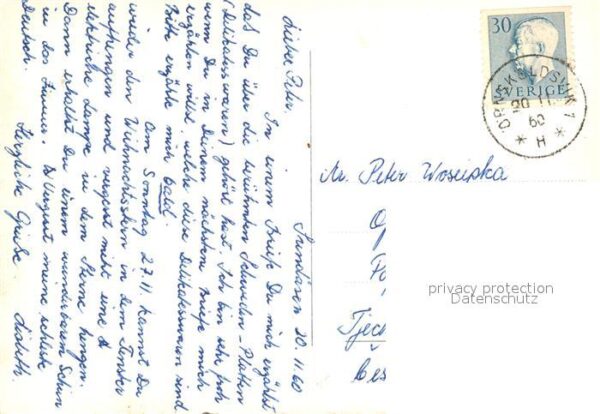 Sundåsen 20.11.60
Lieber Peter.
In einem Briefe Du mich erzählst
das Du über die berühmten Schweden-Platten
(Delikatesswaren) gehört hast. Ich bin sehr froh
wenn Du in Deinem nächsten Briefe mich
erzählen willst welche diese Delikatesswaren sind.
Bitte erzähle mich bald.
Am Sonntag 27.11. kannst Du
wieder den Weihnachtsstern in dem Fenster
aufhengen und vergesst nicht eine
elektrische Lampe in dem Sterne hengen.
Dann erhaltet Du einen wunderbaren Schin
in das Zimmer. Vergesst meine schlechte
Deutsch.
Herzliche Grüße.
30
SVERIGE
ÖRNSKÖLDSVIK 1
20 11
60
* H *
Mr. Peter
privacy protection
Datenschutz
Tjec